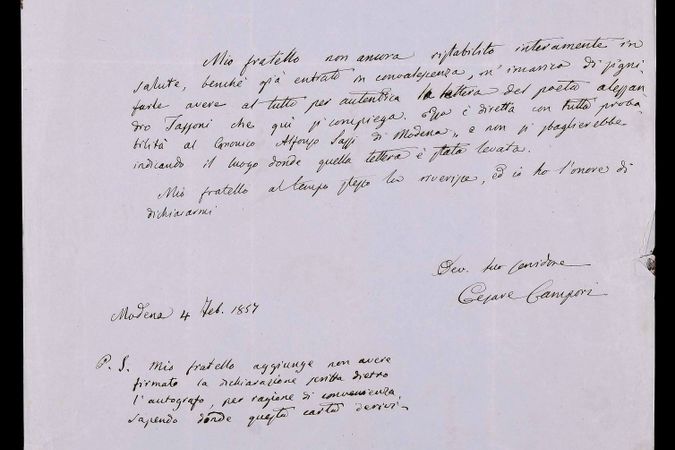 Mio fratello non ancora ristabilito interamente in
salute, benchè già entrato in convalescenza, m'incarica di signi-
ficarle avere al tutto per autentica la lettera del poeta Alessan-
dro Tassoni che qui si compiega. Essa è diretta con tutta proba-
bilità al Canonico Alfonso Sassi di Modena, e non si sbaglierebbe
indicando il luogo donde quella lettera è stata levata.
Mio fratello al tempo stesso la riverisce, ed io ho l'onore di
dichiararmi
Dev. suo servidore
Cesare Campori
Modena 4 Feb. 1857
P. S. Mio fratello aggiunge non avere
firmato la dichiarazione scritta dietro
l'autografo, per ragione di convenienza,
sapendo donde questa carta derivi.